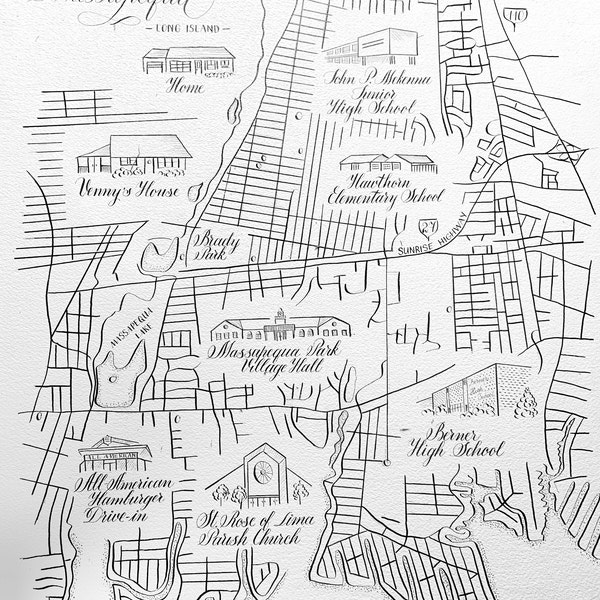 Massapequa
- LONG ISLAND -
110
Home
John P. Mckenna
Junior
High School
Venny's House
Hawthorn
Elementary School
27
SUNRISE HIGHWAY
Brady
Park
MASSAPEQUA
LAKE
Massapequa Park
Village Hall
Berner
High School
ALL AMERICAN
All American
Hamburger
Drive-in
St. Rose of Lima
Parish Church